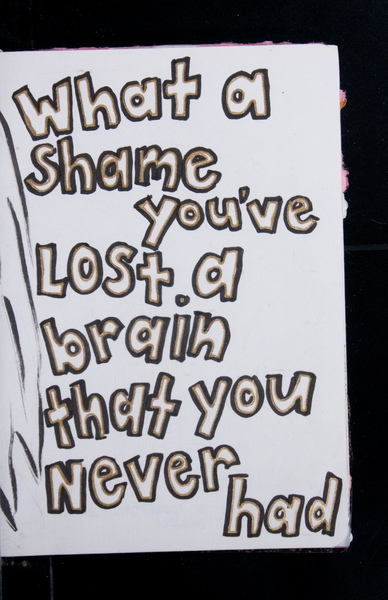 What a
Shame
you've
LOST a
brain
that you
Never
had